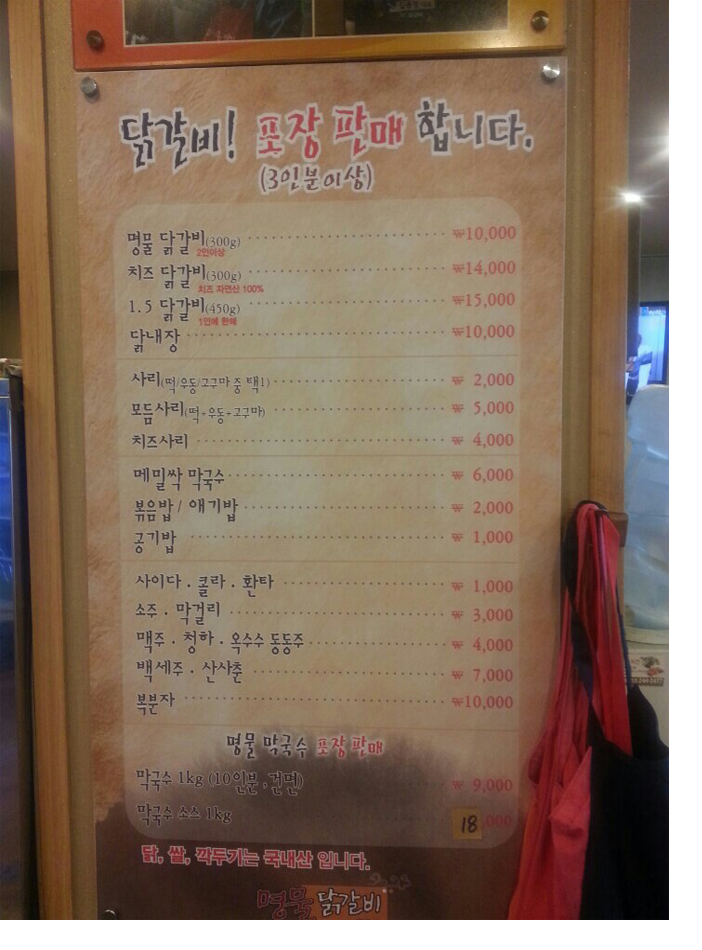 닭갈비! 포장 판매 합니다.
(3인분이상)
명물 닭갈비(300g) ₩10,000
2인이상
치즈 닭갈비(300g) ₩14,000
치즈 자연산 100%
1.5 닭갈비(450g) ₩15,000
1인에 한해
닭내장 ₩10,000
사리(떡/우동/고구마 중 택1) ₩ 2,000
모듬사리(떡+우동+고구마) ₩ 5,000
치즈사리 ₩ 4,000
메밀싹 막국수 ₩ 6,000
볶음밥 / 애기밥 ₩ 2,000
공기밥 ₩ 1,000
사이다 . 콜라 . 환타 ₩ 1,000
소주 . 막걸리 ₩ 3,000
맥주 . 청하 . 옥수수 동동주 ₩ 4,000
백세주 . 산사춘 ₩ 7,000
복분자 ₩10,000
명물 막국수 포장 판매
막국수 1kg (10인분, 건면) ₩ 9,000
막국수 소스 1kg 18,000
닭, 쌀, 깍두기는 국내산 입니다.
명물 닭갈비